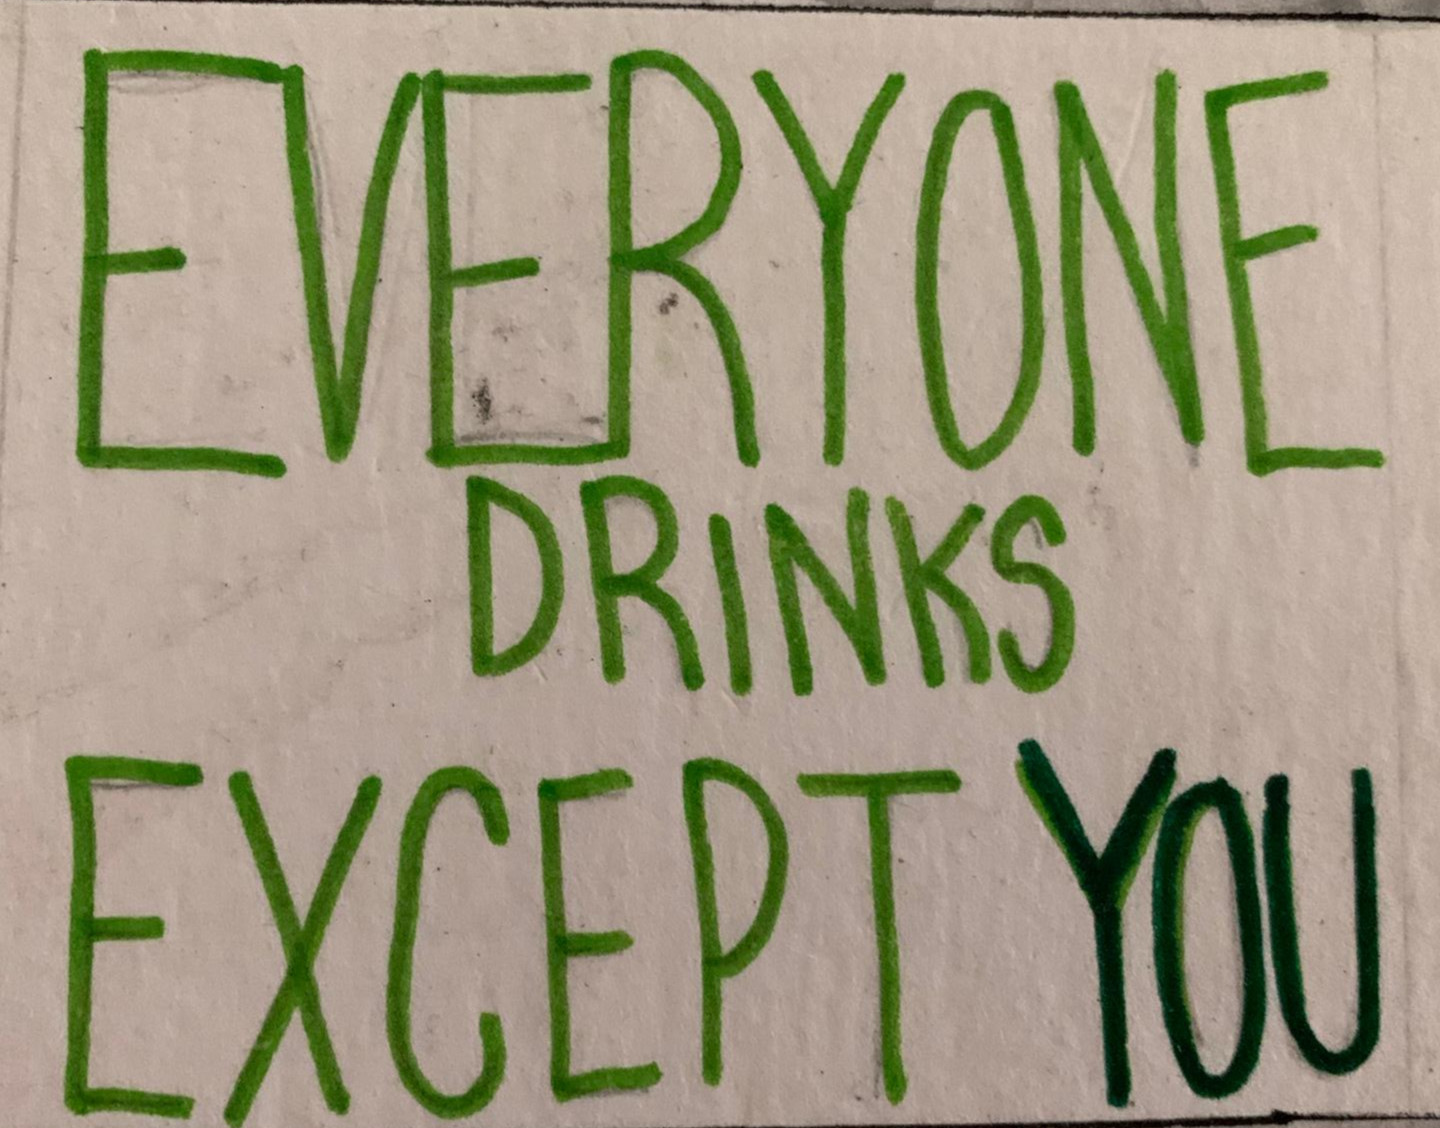 EVERYONE
DRINKS
EXCEPT YOU